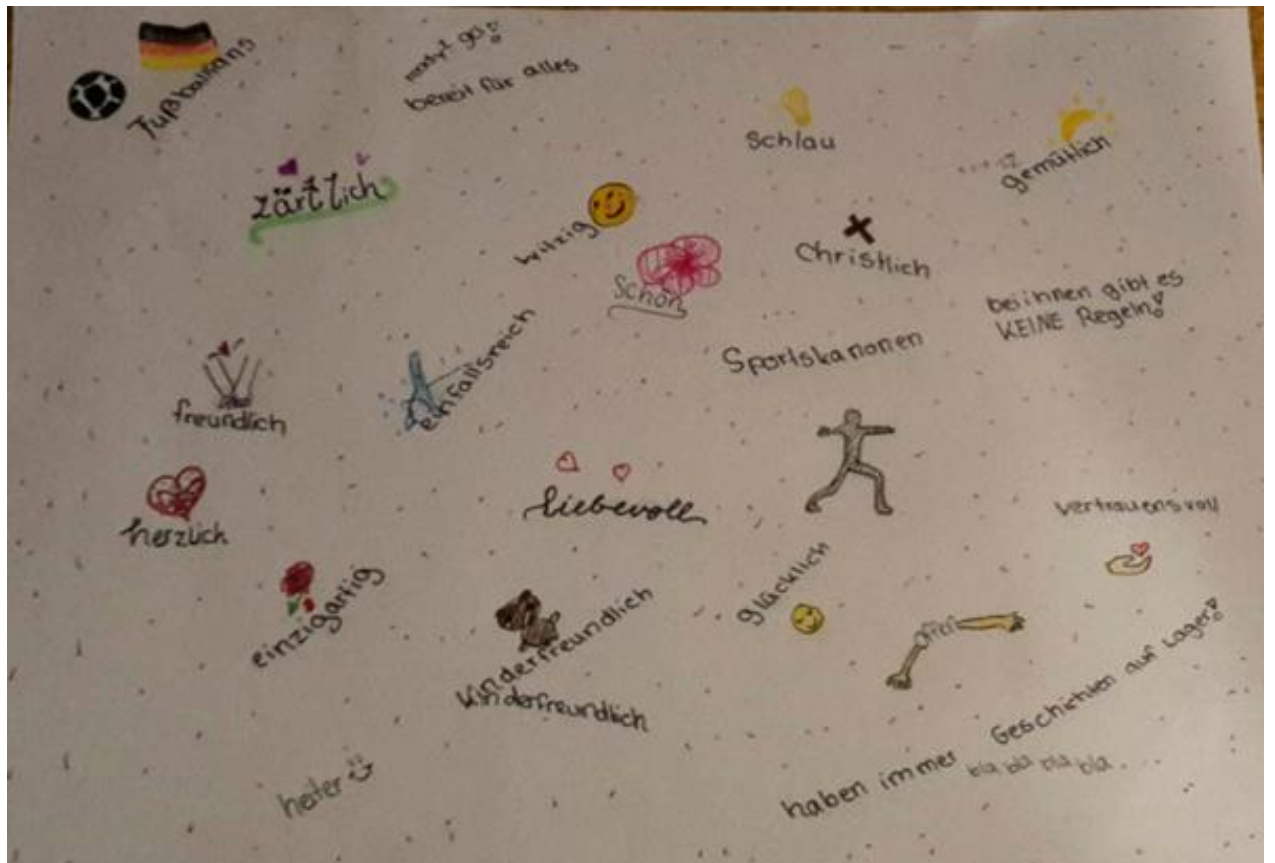 Fußballfans
bereit für alles
Schlau
gemütlich
zärtlich
witzig
Schön
Christlich
bei ihnen gibt es
KEINE Regeln!
Sportskanonen
freundlich
einfallsreich
herzlich
liebevoll
vertrauensvoll
einzigartig
kinderfreundlich
Kinderfreundlich
glücklich
offen
heiter
haben immer Geschichten auf Lager!
bla bla bla bla...